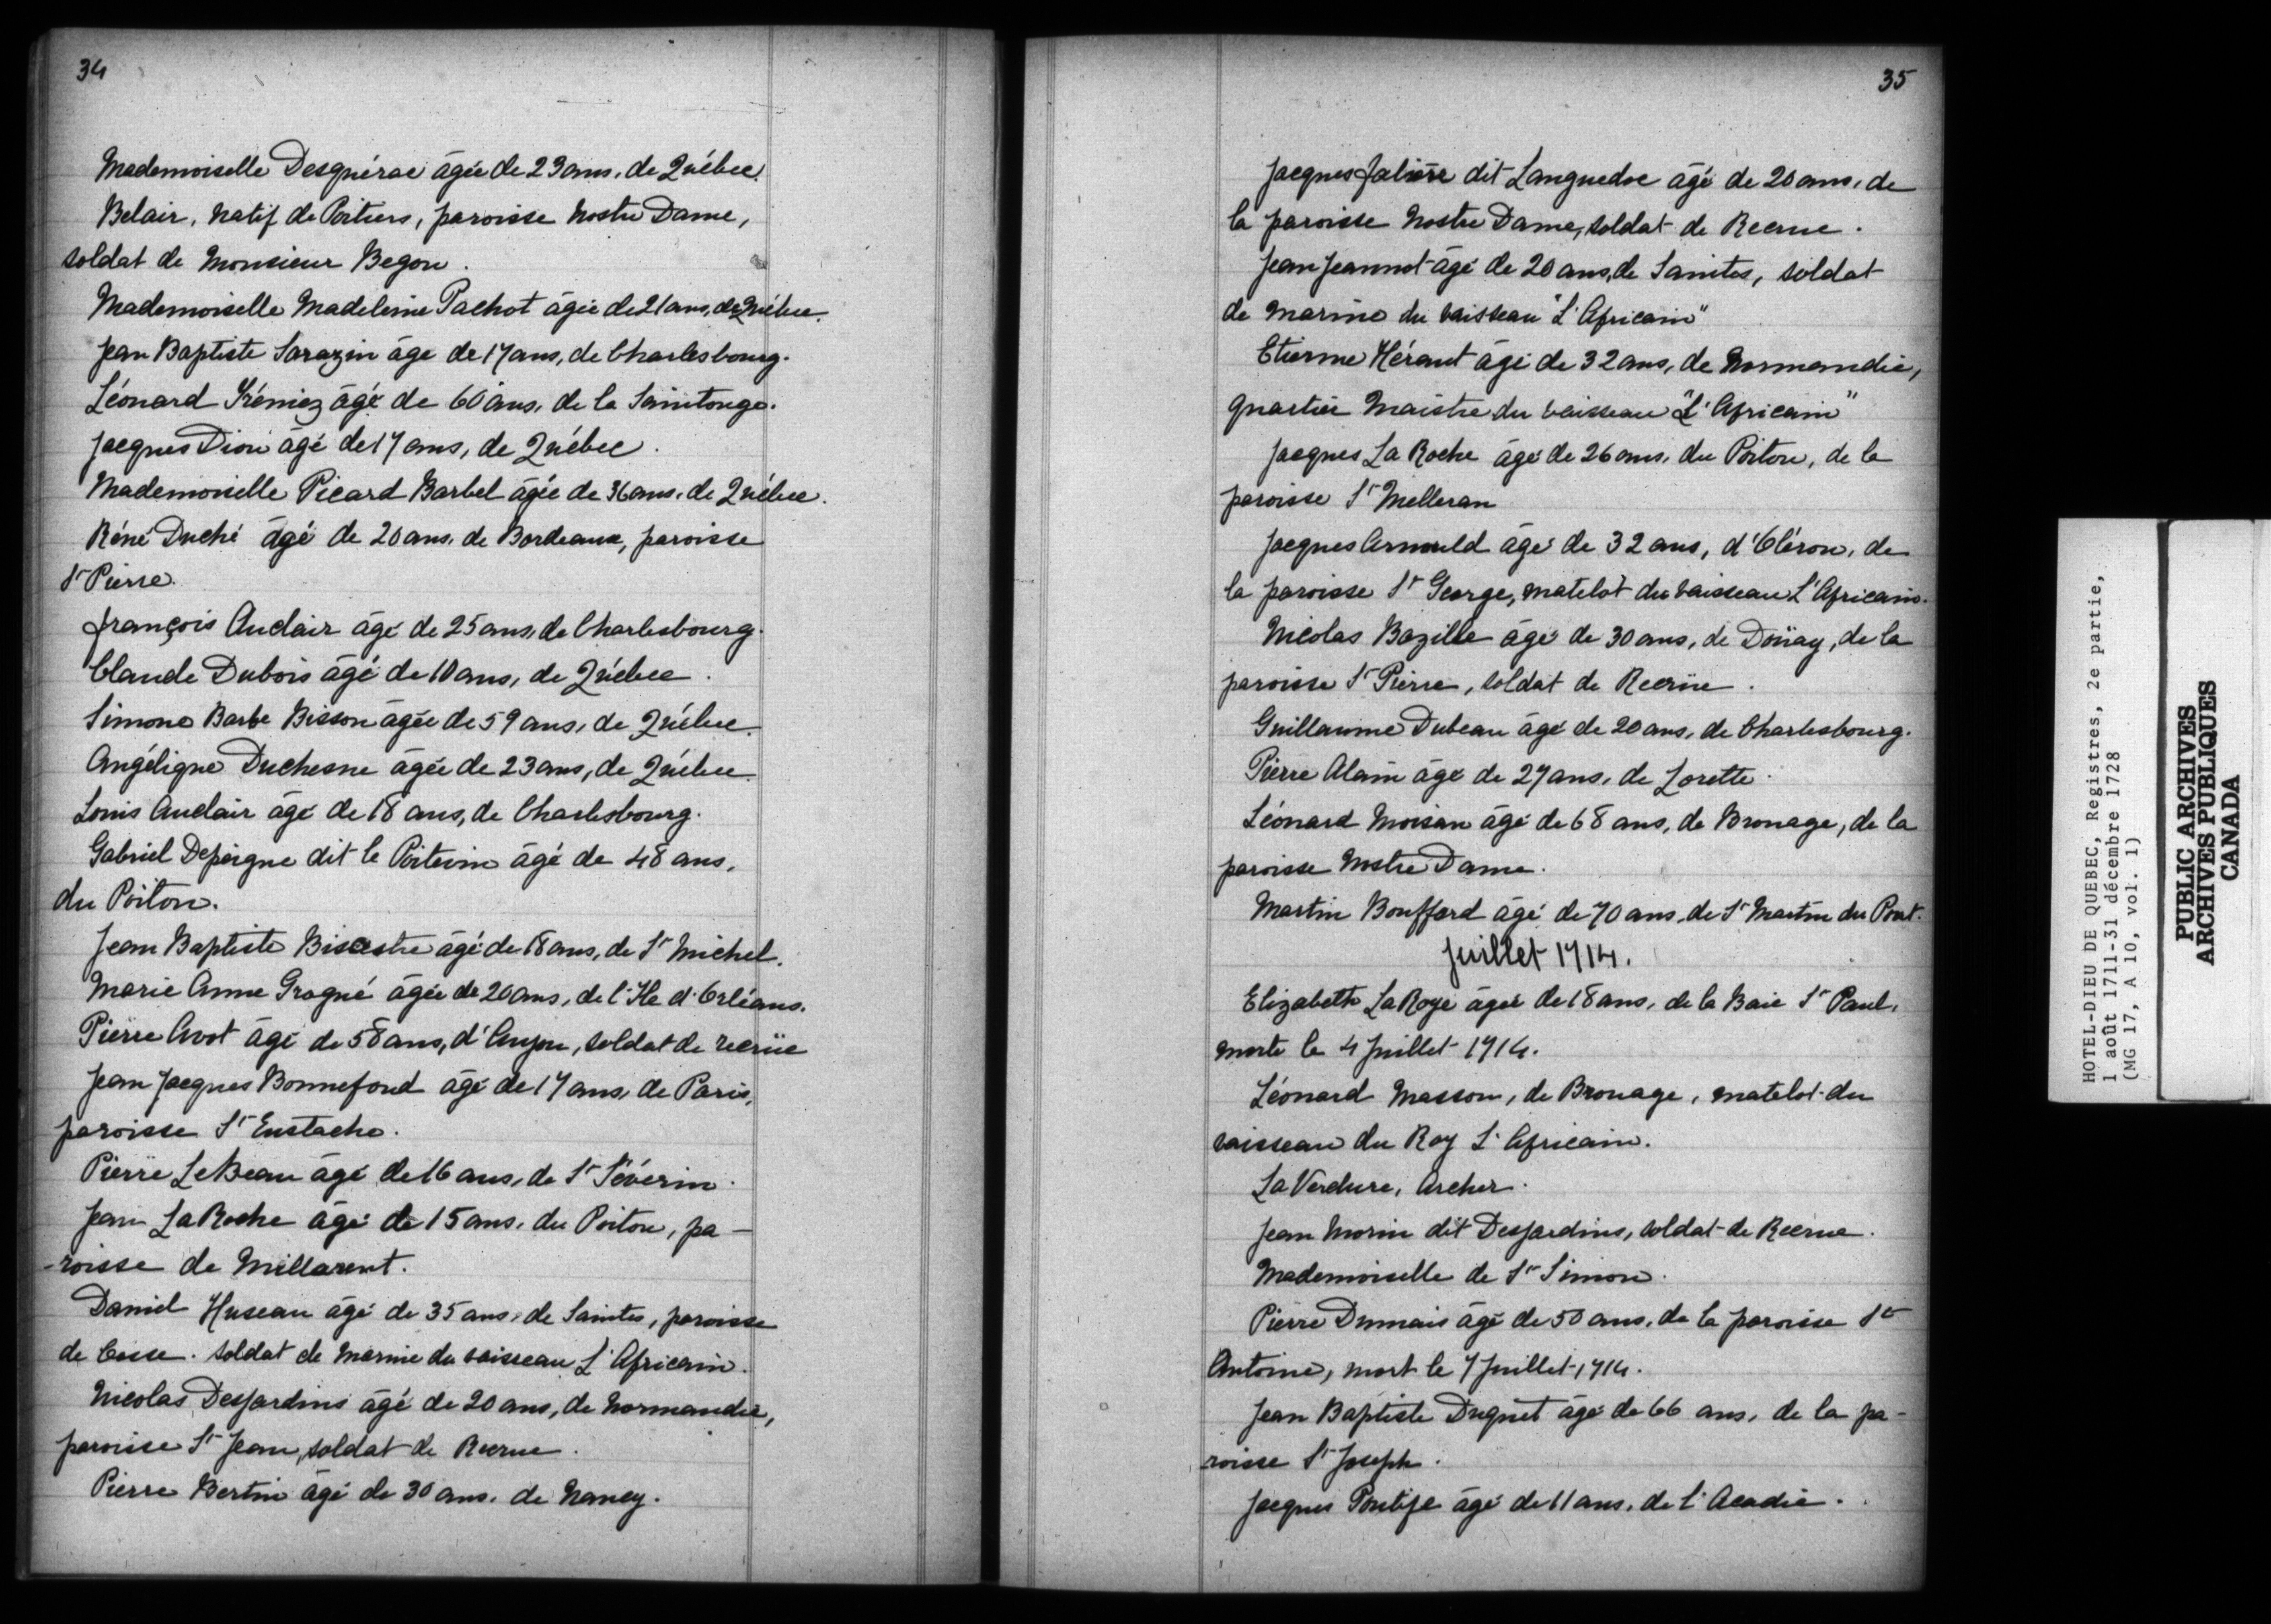 34
Mademoiselle Desguérac âgée de 23 ans, de Québec.
Belair, natif de Poitiers, paroisse Nostre Dame,
soldat de Monsieur Begon.
Mademoiselle Madeleine Pachot âgée de 21 ans, de Québec.
Jean Baptiste Sarazin âge de 17 ans, de Charlesbourg.
Léonard Trémiez âgé de 60 ans, de la Saintonge.
Jacques Dion âgé de 17 ans, de Québec.
Mademoiselle Picard Barbel âgée de 36 ans, de Québec.
Réné Duché âgé de 20 ans, de Bordeaux, paroisse
St Pierre.
François Auclair âgé de 25 ans, de Charlesbourg.
Claude Dubois âgé de 10 ans, de Québec.
Simone Barbe Bisson âgée de 59 ans, de Québec.
Angélique Duchesne âgée de 23 ans, de Québec.
Louis Auclair âgé de 18 ans, de Charlesbourg.
Gabriel Depeigne dit le Poitevin âgé de 48 ans,
du Poitou.
Jean Baptiste Bisestre âgé de 18 ans, de St Michel.
Marie Anne Grogné âgée de 20 ans, de l'Ile d'Orléans.
Pierre Avot âgé de 58 ans, d'Anjou, soldat de recrüe
Jean Jacques Bonnefond âgé de 17 ans, de Paris,
paroisse St Eustache.
Pierre LeBeau âgé de 16 ans, de St Séverin.
Jean LaRoche âgé de 15 ans, du Poitou, pa-
-roisse de Millarent.
Daniel Huseau âgé de 35 ans, de Saintes, paroisse
de Cosse. soldat de marine du vaisseau L'Africain.
Nicolas DesJardins âgé de 20 ans, de Normandie,
paroisse St Jean, soldat de Recrue.
Pierre Bertin âgé de 30 ans, de Nancy.
35
Jacques Jalière dit Languedoc âgé de 20 ans, de
la paroisse Nostre Dame, soldat de Recrue.
Jean Jeannot âgé de 20 ans, de Saintes, soldat
de marine du vaisseau "L'Africain"
Etienne Héraut âgé de 32 ans, de Normandie,
quartier Maistre du vaisseau "L'Africain"
Jacques La Roche âgé de 26 ans, du Poitou, de la
paroisse St Melleran
Jacques Arnould âgé de 32 ans, d'Oléron, de
la paroisse St George, matelot du vaisseau L'Africain.
Nicolas Bazille âgé de 30 ans, de Doüay, de la
paroisse St Pierre, soldat de Recrüe.
Guillaume Dubeau âgé de 20 ans, de Charlesbourg.
Pierre Alain âgé de 27 ans, de Lorette.
Léonard Moisan âgé de 68 ans, de Brouage, de la
paroisse Nostre Dame.
Martin Bouffard âgé de 70 ans, de St Martin du Pont.
Juillet 1714.
Elizabeth LaRoye âgée de 18 ans, de la Baie St Paul,
morte le 4 Juillet 1714.
Léonard Masson, de Brouage, matelot du
vaisseau du Roy L'Africain.
La Verdure, Archer.
Jean Morin dit DesJardins, soldat de Recrue.
Mademoiselle de St Simon.
Pierre Dumais âgé de 50 ans, de la paroisse St
Antoine, mort le 7 Juillet 1714.
Jean Baptiste Duquet âgé de 66 ans, de la pa-
roisse St Joseph.
Jacques Pontife âgé de 11 ans, de l'Acadie.
HOTEL-DIEU DE QUEBEC, Registres, 2e partie,
1 août 1711-31 décembre 1728
(MG 17, A 10, vol. 1)
PUBLIC ARCHIVES
ARCHIVES PUBLIQUES
CANADA